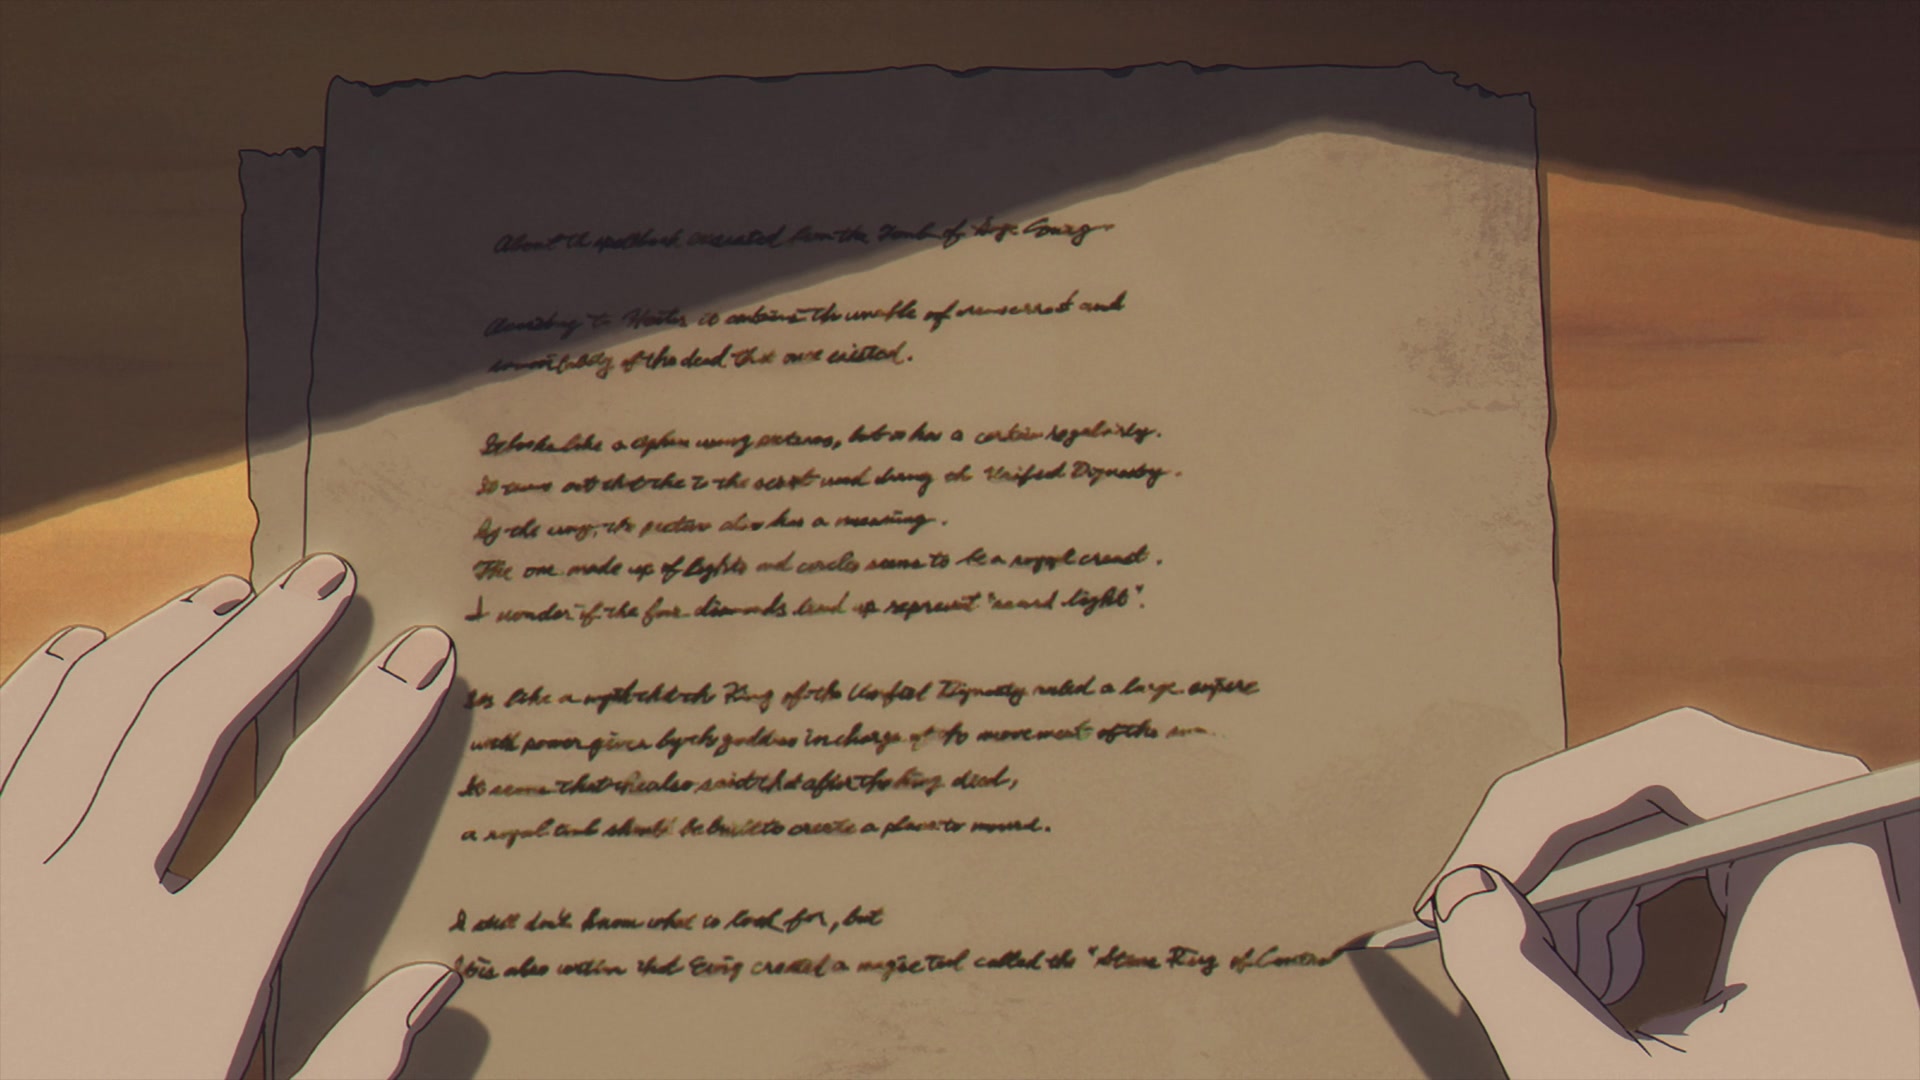 About the spellbook excavated from the Tomb of
According to it contains the of and
of the dead that once existed.
It looks like a using pictures, but it has a certain regularity.
It turns out that the to the script used during the Unified Dignasty.
By the way, the picture also has a meaning.
The one made up of lights and circles seems to be a royal crest.
I wonder if the four diamonds lined up represent "sacred light".
like a myth that the King of the Unified Dignasty ruled a large empire
with power given by the goddess in charge of the movement of the sun.
It seems that also said that after the king died,
a royal tomb should be built to create a place to mourn.
I still don't know what to look for, but
also written that Ewig created a magic tool called the "Stone Ring of